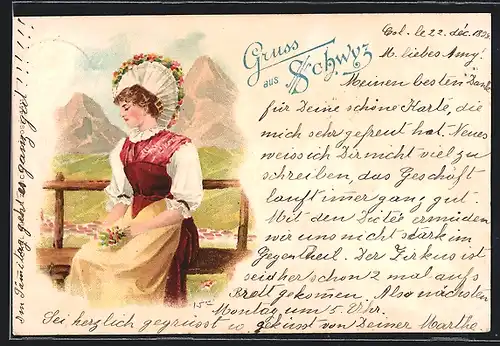 Gruss
aus
Schwyz
Col. le 22 déc.
M. liebes Amy!
Meinen besten Dank
für Deine schöne Karte, die
mich sehr gefreut hat. Neues
weiss ich Dir nicht viel zu
schreiben, das Geschäft
lauft immer ganz gut.
Mit den ermüden
wir uns nicht stark im
Gegentheil. Der Zirkus ist
seidher schon 2 mal aufs
Brett gekommen. Also nächsten
Montag um 5 Uhr.
Sei herzlich gegrüsst u. geküsst von Deiner Marthe.